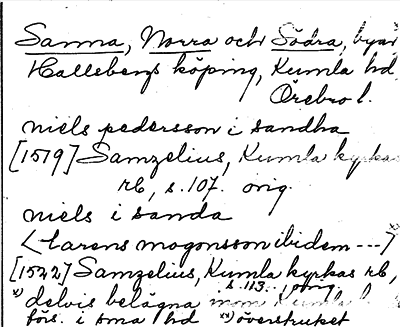 Sanna, Norra och Södra, byar,
Hallsbergs köping, Kumla hd,
Örebro l.
niels pedersson i sandha
[1519] Samzelius, Kumla kyrkas
rb, s. 107. orig.
niels i sanda
<larens mogonsson ibidem ---> x)
[1522] Samzelius, Kumla kyrkas rb,
s. 113. orig.
x) delvis belägna inom Kumla
förs. i sma hd xx) överstruket